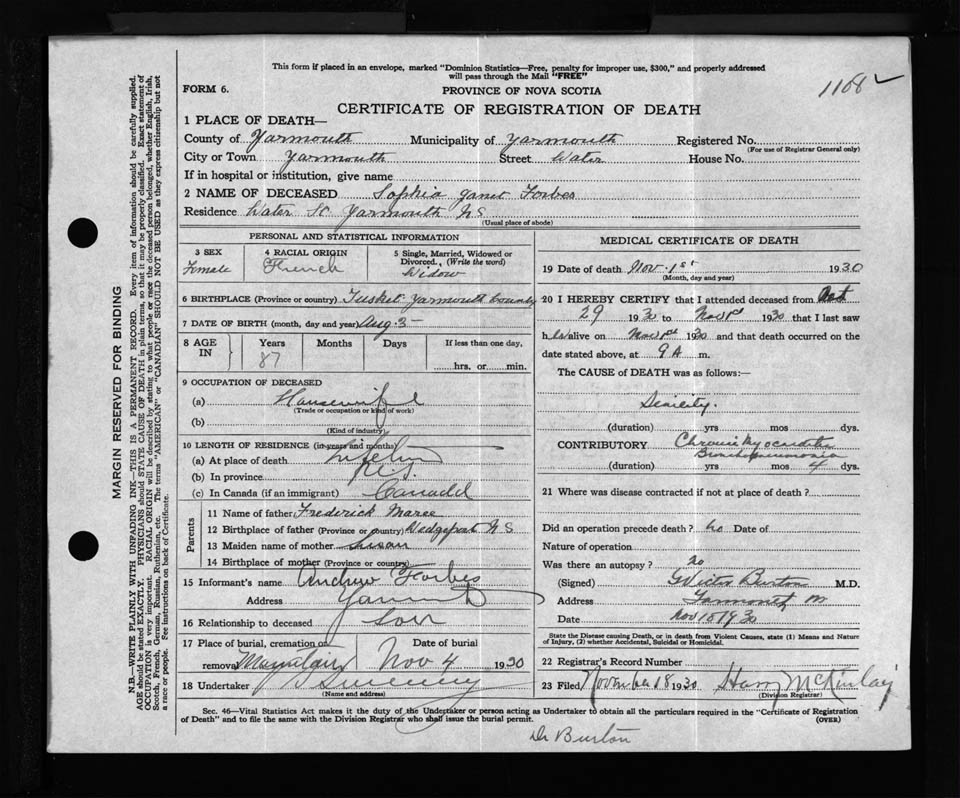 This form if placed in an envelope, marked "Dominion Statistics—Free, penalty for improper use, $300," and properly addressed
will pass through the Mail "FREE"
1108
FORM 6.
PROVINCE OF NOVA SCOTIA
CERTIFICATE OF REGISTRATION OF DEATH
1 PLACE OF DEATH—
County of Yarmouth Municipality of Yarmouth Registered No.
(For use of Registrar General only)
City or Town Yarmouth Street Water House No.
If in hospital or institution, give name
2 NAME OF DECEASED Sophia Janet Forbes
Residence Water St Yarmouth NS
(Usual place of abode)
PERSONAL AND STATISTICAL INFORMATION
3 SEX Female
4 RACIAL ORIGIN French
5 Single, Married, Widowed or Divorced, (Write the word) Widow
6 BIRTHPLACE (Province or country) Tusket Yarmouth County
7 DATE OF BIRTH (month, day and year) Aug. 3
8 AGE IN Years Months Days If less than one day,
87 hrs. or min.
9 OCCUPATION OF DECEASED
(a) Housewife
(Trade or occupation or kind of work)
(b)
(Kind of industry)
10 LENGTH OF RESIDENCE (in years and months)
(a) At place of death
(b) In province N.S.
(c) In Canada (if an immigrant) Canada
Parents
11 Name of father Frederick
12 Birthplace of father (Province or country) Wedgeport NS
13 Maiden name of mother Susan
14 Birthplace of mother (Province or country)
15 Informant's name Andrew Forbes
Address Yarmouth
16 Relationship to deceased Son
17 Place of burial, cremation or removal Mountain Date of burial Nov 4 1930
18 Undertaker Sweeney
(Name and address)
MEDICAL CERTIFICATE OF DEATH
19 Date of death Nov. 1st 1930
(Month, day and year)
20 I HEREBY CERTIFY that I attended deceased from Oct
29 1930 to Nov 1st 1930 that I last saw
h alive on Nov 1st 1930 and that death occurred on the
date stated above, at 9 A m.
The CAUSE of DEATH was as follows:—
Senility.
(duration) yrs mos dys.
CONTRIBUTORY Chronic Myocarditis
Bronchopneumonia
(duration) yrs mos 4 dys.
21 Where was disease contracted if not at place of death?
Did an operation precede death? no Date of
Nature of operation
Was there an autopsy? no
(Signed) G Victor Burton M.D.
Address Yarmouth NS
Date Nov 1930
State the Disease causing Death, or in death from Violent Causes, state (1) Means and Nature
of Injury, (2) whether Accidental, Suicidal or Homicidal.
22 Registrar's Record Number
23 Filed November 18 1930 Harry McKinlay
(Division Registrar)
Sec. 46—Vital Statistics Act makes it the duty of the Undertaker or person acting as Undertaker to obtain all the particulars required in the "Certificate of Registration
of Death" and to file the same with the Division Registrar who shall issue the burial permit.
(OVER)
Dr Burton
MARGIN RESERVED FOR BINDING
N.B.—WRITE PLAINLY WITH UNFADING INK—THIS IS A PERMANENT RECORD. Every item of information should be carefully supplied.
AGE should be stated EXACTLY. PHYSICIANS should STATE CAUSE OF DEATH in plain terms, so that it may be properly classified. Exact statement of
OCCUPATION is very important. RACIAL ORIGIN will be described by stating to what people or race the deceased person belonged, whether English, Irish,
Scotch, French, German, Russian, Ruthenian, etc. The terms "AMERICAN" or "CANADIAN" SHOULD NOT BE USED as they express citizenship but not
a race or people. See instructions on back of Certificate.